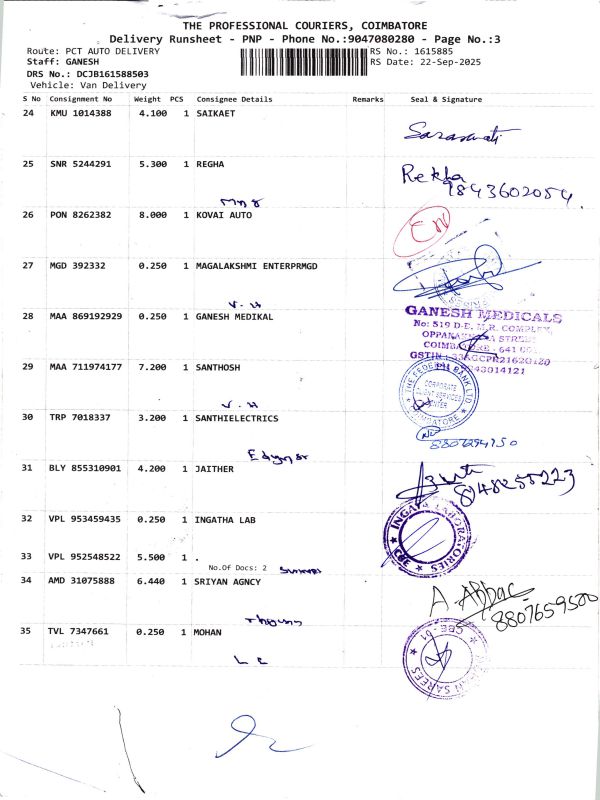 THE PROFESSIONAL COURIERS, COIMBATORE
Delivery Runsheet - PNP - Phone No.:9047080280 - Page No.:3
Route: PCT AUTO DELIVERY RS No.: 1615885
Staff: GANESH RS Date: 22-Sep-2025
DRS No.: DCJB161588503
Vehicle: Van Delivery
S No Consignment No Weight PCS Consignee Details Remarks Seal & Signature
24 KMU 1014388 4.100 1 SAIKAET
Saraswati
25 SNR 5244291 5.300 1 REGHA
Rekha
9843602054.
26 PON 8262382 8.000 1 KOVAI AUTO
27 MGD 392332 0.250 1 MAGALAKSHMI ENTERPRMGD
28 MAA 869192929 0.250 1 GANESH MEDIKAL
GANESH MEDICALS
No: 519 D-E, M.R. COMPLEX,
OPPANAKKARA STREET
COIMBATORE - 641 001
29 MAA 711974177 7.200 1 SANTHOSH
THE FEDERAL BANK LTD.
CORPORATE
CLIENT SERVICES
CENTER
COIMBATORE
30 TRP 7018337 3.200 1 SANTHIELECTRICS
31 BLY 855310901 4.200 1 JAITHER
8148255223
32 VPL 953459435 0.250 1 INGATHA LAB
LABORATORIES
33 VPL 952548522 5.500 1 .
No.Of Docs: 2
34 AMD 31075888 6.440 1 SRIYAN AGNCY
A. Abbas
8807659500
35 TVL 7347661 0.250 1 MOHAN
CBE-01
SAREES